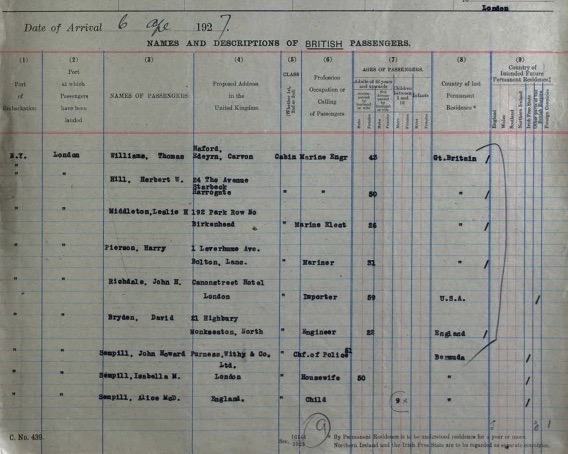 London
Date of Arrival 6 Apl 1927.
NAMES AND DESCRIPTIONS OF BRITISH PASSENGERS.
(1) (2) (3) (4) (5) (6) (7) (8) (9)
Port of Embarkation
Port at which Passengers have been landed
NAMES OF PASSENGERS
Proposed Address in the United Kingdom.
CLASS
Profession Occupation or Calling of Passengers
AGES OF PASSENGERS.
Adults of 12 years and upwards
Children between 1 and 12
Infants
Country of last Permanent Residence *
Country of Intended Future Permanent Residence
England
Wales
Scotland
Northern Ireland
Irish Free State
Foreign Countries
Haford,
N.Y. London Williams, Thomas Edeyrn, Carvon Cabin Marine Engr 43 Gt.Britain /
" "
Hill, Herbert W. 24 The Avenue
Starbeck
" " Harrogate " " 50 " /
Middleton, Leslie H 192 Park Row No
" " Birkenhead " Marine Elect 26 " /
Pierson, Harry 1 Leverhume Ave.
" " Bolton, Lanc. " Mariner 31 " /
Richdale, John H. Canonstreet Hotel
" " London " Importer 59 U.S.A. /
Bryden, David 21 Highbury
" " Monkseaton, North " Engineer 22 England /
" " Sempill, John Howard Furness, Withy & Co. " Chf. of Police 51 Bermuda
Ltd.
" " Sempill, Isabella M. London " Housewife 50 " /
" " Sempill, Alice McD. England. " Child 9 " /
9
C. No. 439.
* By Permanent Residence is to be understood residence for a year or more.
Northern Ireland and the Irish Free State are to be regarded as separate countries.